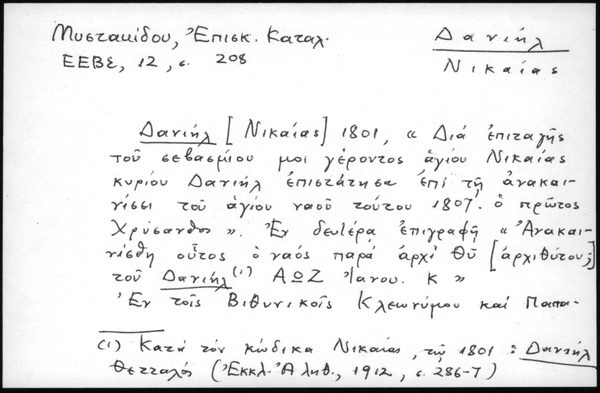 Μυστακίδου, Ἐπισκ. Καταλ.
ΕΕΒΣ, 12, σ. 208
Δανιήλ
Νικαίας
Δανιήλ [Νικαίας] 1801, « Διά ἐπιταγῆς
τοῦ σεβασμίου μοι γέροντος ἁγίου Νικαίας
κυρίου Δανιήλ ἐπιστάτησα ἐπί τῇ ἀνακαι-
νίσει τοῦ ἁγίου ναοῦ τούτου 1807. ὁ πρῶτος
Χρύσανθος ». Ἐν δευτέρᾳ ἐπιγραφῇ « Ἀνακαι-
νίσθη οὗτος ὁ ναός παρά ἀρχι θῦ [ἀρχιθύτου;]
τοῦ Δανιήλ (1) ΑΩΖ Ἰανου. Κ »
Ἐν τοῖς Βιθυνικοῖς Κλεωνύμου καί Παπα-
(1) Κατά τόν κώδικα Νικαίας, τῷ 1801 : Δανιήλ
Θετταλός (Ἐκκλ. Ἀληθ., 1912, σ. 286-7)